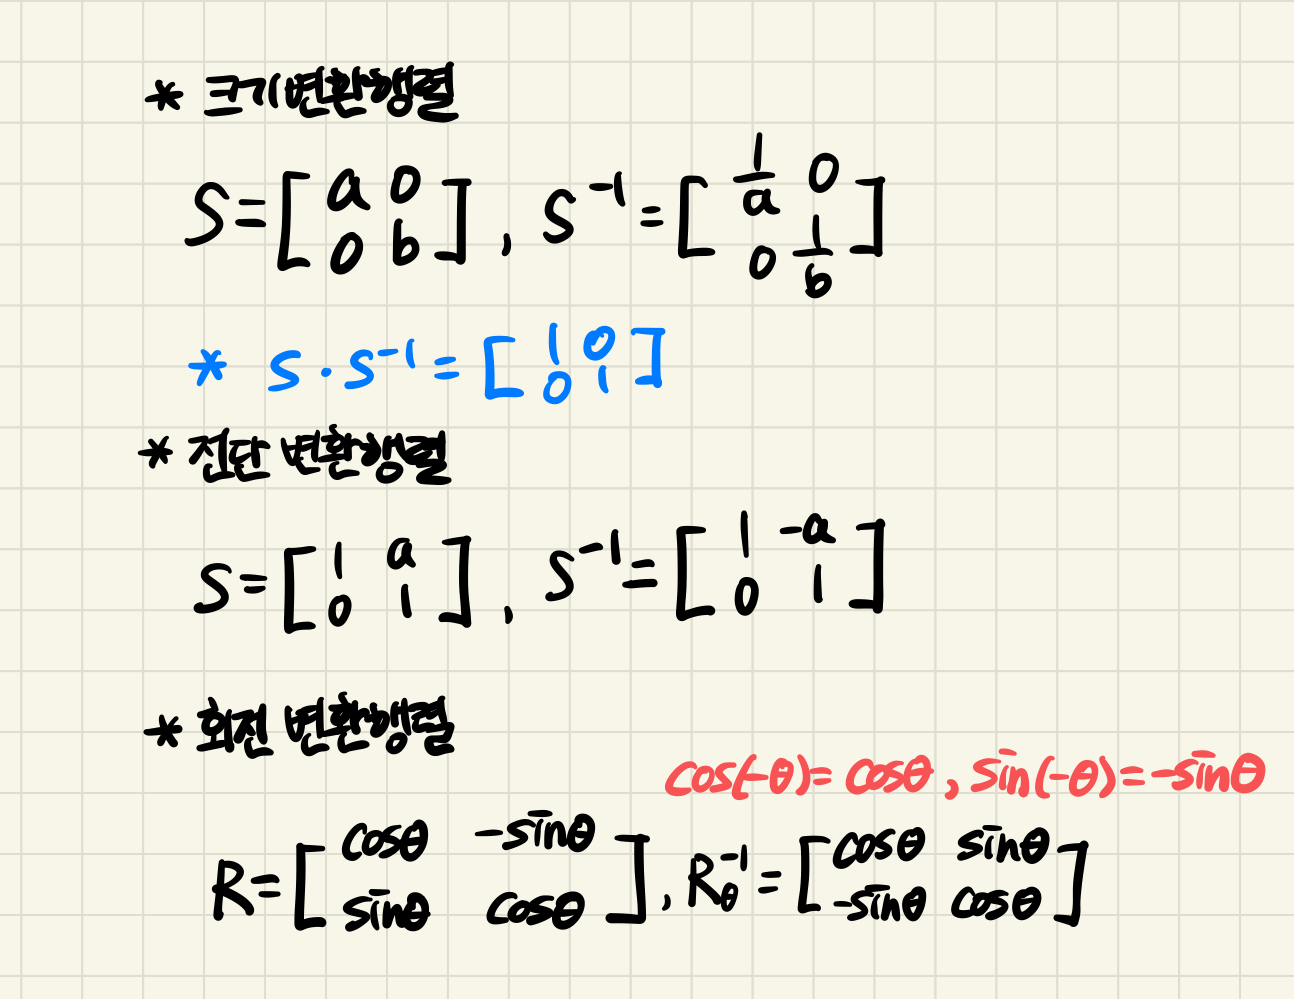 * 크기변환행렬
S = [a 0; 0 b], S⁻¹ = [1/a 0; 0 1/b]
* S · S⁻¹ = [1 0; 0 1]
* 전단 변환행렬
S = [1 a; 0 1], S⁻¹ = [1 -a; 0 1]
* 회전 변환행렬
cos(-θ) = cosθ, sin(-θ) = -sinθ
R = [cosθ -sinθ; sinθ cosθ], R_θ⁻¹ = [cosθ sinθ; -sinθ cosθ]